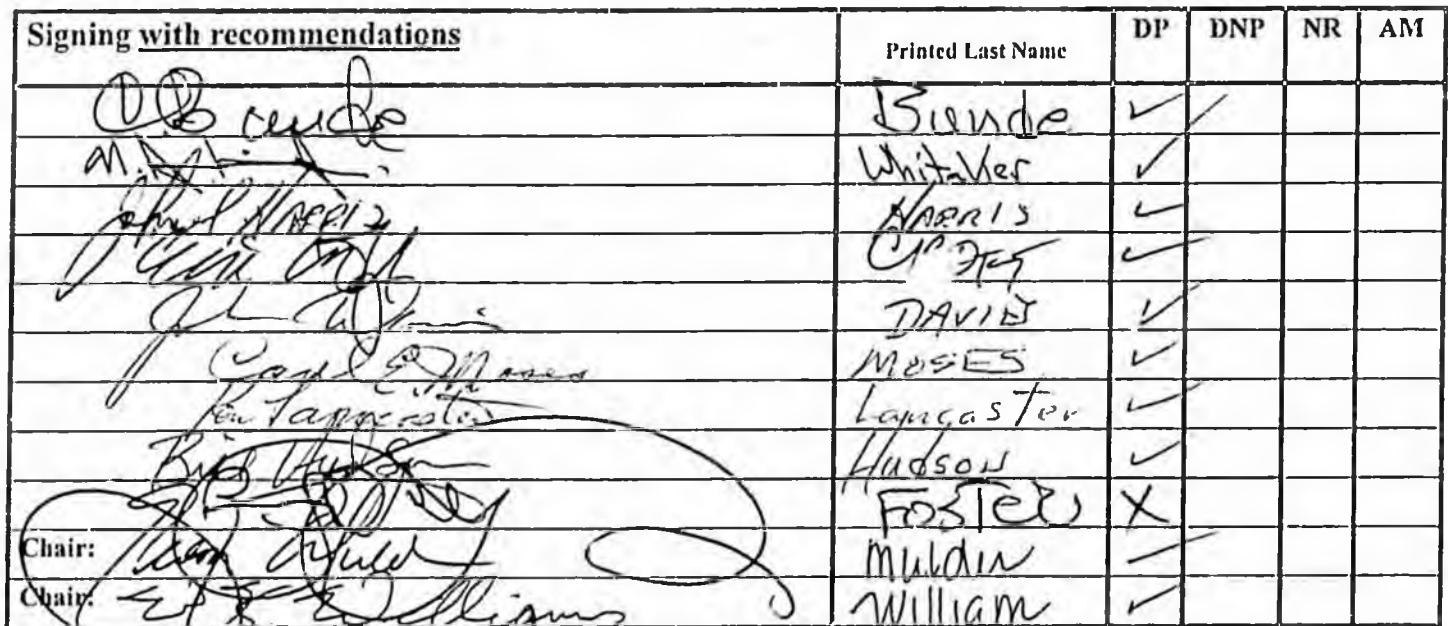 Signing with recommendations Printed Last Name DP DNP NR AM
Bunde Bunde ✓
M. Whitaker ✓
John L HARRIS HARRIS ✓
✓
John DAVIS ✓
Carl E. Moses MOSES ✓
Ron Lancaster Lancaster ✓
Bill Hudson Hudson ✓
Foster X
Chair: Muldin
Chair: Williams William ✓